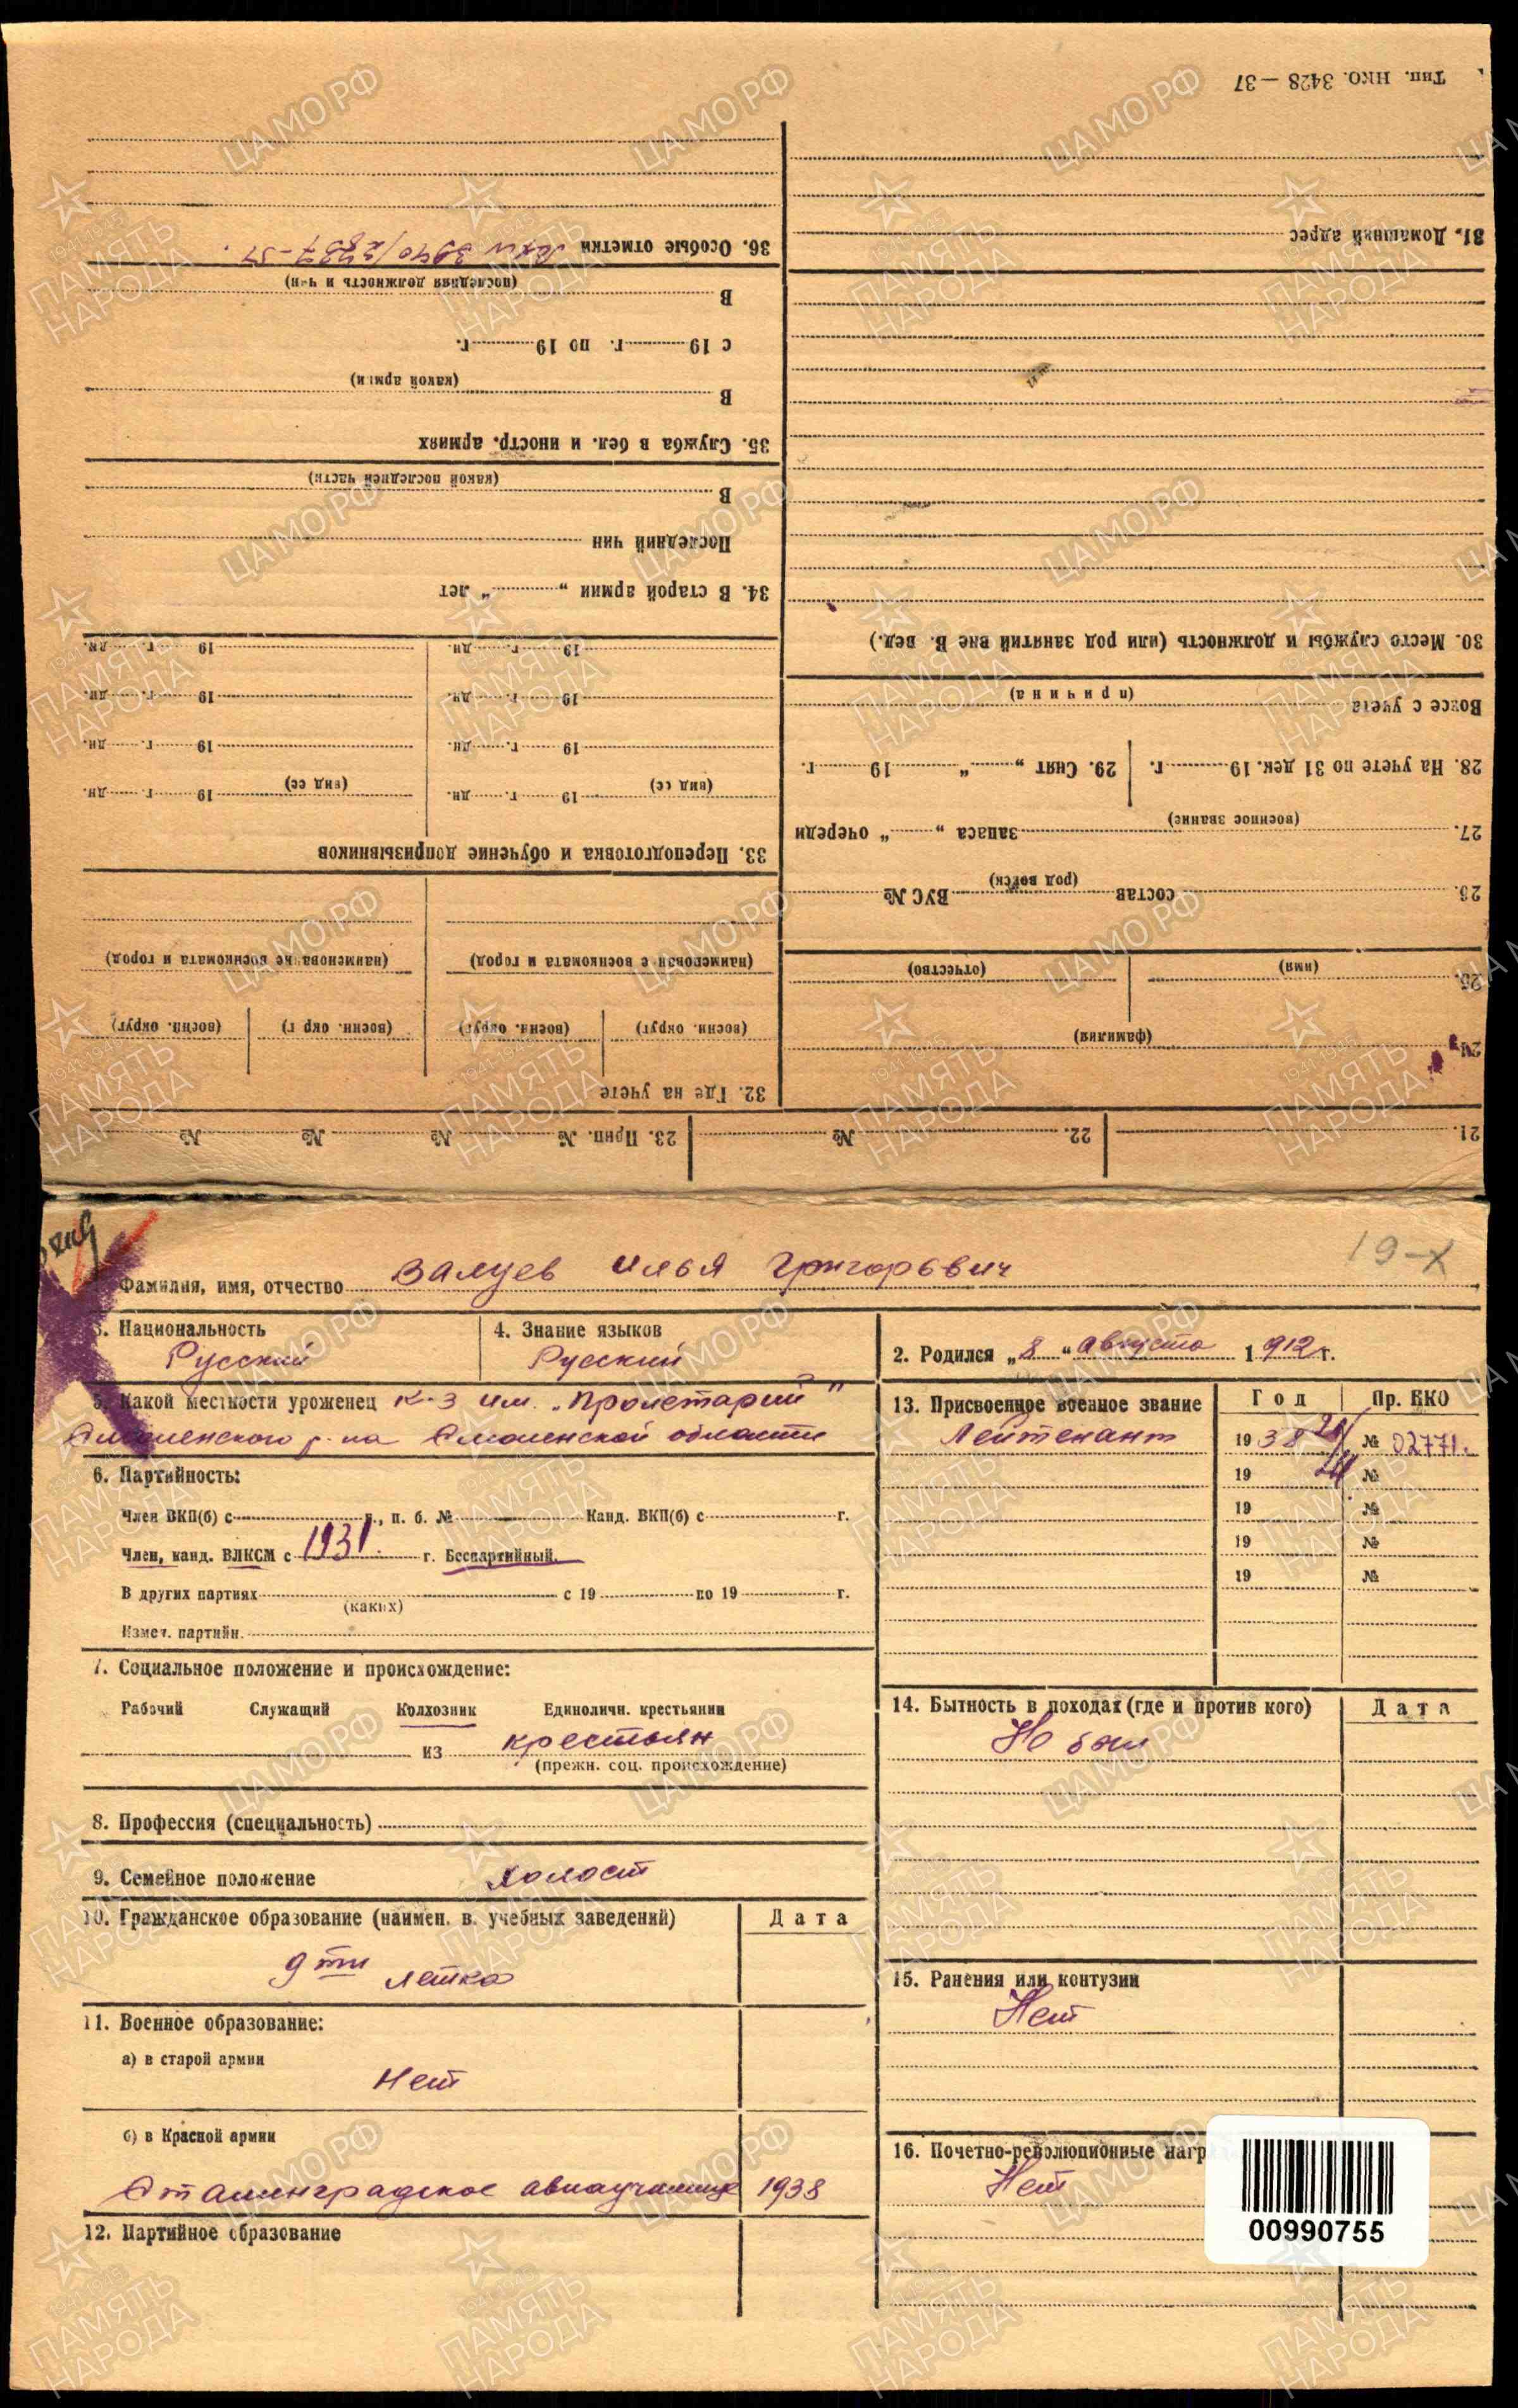 Тип. НКО. 3428 — 37
36. Особые отметки
(последняя должность и чин)
В
с 19 г. по 19 г.
(какой армии)
В
35. Служба в бел. и иностр. армиях
(какой последней части)
В
Последний чин
34. В старой армии „ “ лет
19 г. дн. 19 г. дн.
19 г. дн. 19 г. дн.
19 г. дн. 19 г. дн.
(вид сб) 19 г. дн. (вид сб) 19 г. дн.
33. Переподготовка и обучение допризывников
(наименование военкомата и город) (наименование военкомата и город)
(воени. округ) (воени. округ) (воени. округ) (воени. округ)
32. Где на учете
31. Домашний адрес
30. Место службы и должность (или род занятий вне В. вед.)
Вовсе с учета
(причина)
28. На учете по 31 дек. 19 г. 29. Снят „ “ 19 г.
27. запаса „ “ очереди
(военное звание)
26. состав ВУС №
(род войск)
25. (имя) (отчество)
24. (фамилия)
21. 22. № 23. Прип. № № № №
19-X
Фамилия, имя, отчество Валуев Илья Григорьевич
3. Национальность
Русский
4. Знание языков
Русский
2. Родился „8“ августа 1912 г.
5. Какой местности уроженец к-з им. „Пролетарий“
Смоленского р-на Смоленской области
6. Партийность:
Член ВКП(б) с г., п. б. № Канд. ВКП(б) с г.
Член, канд. ВЛКСМ с 1931. г. Беспартийный.
В других партиях с 19 по 19 г.
(каких)
Измен. партийн.
7. Социальное положение и происхождение:
Рабочий Служащий Колхозник Единоличн. крестьянин
из крестьян
(прежн. соц. происхождение)
8. Профессия (специальность)
9. Семейное положение холост
10. Гражданское образование (наимен. в. учебных заведений) Дата
9ти летка
11. Военное образование:
а) в старой армии
Нет
б) в Красной армии
Сталинградское авиаучилище 1938
12. Партийное образование
13. Присвоенное военное звание Год Пр. НКО
Лейтенант 1938 № 02771.
19 №
19 №
19 №
19 №
14. Бытность в походах (где и против кого) Дата
Не был
15. Ранения или контузии
Нет
16. Почетно-революционные нагр
Нет
00990755
ЦАМО.РФ
1941-1945
ПАМЯТЬ
НАРОДА